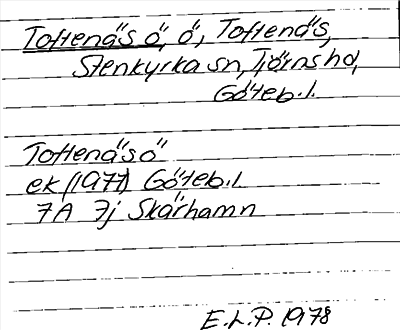 Toftenäs ö, ö, Toftenäs,
Stenkyrka sn, Tjörns hd,
Göteb. l.
Toftenäs ö
ek (1977) Göteb. l.
7A 7j Skärhamn
E.L.P. 1978